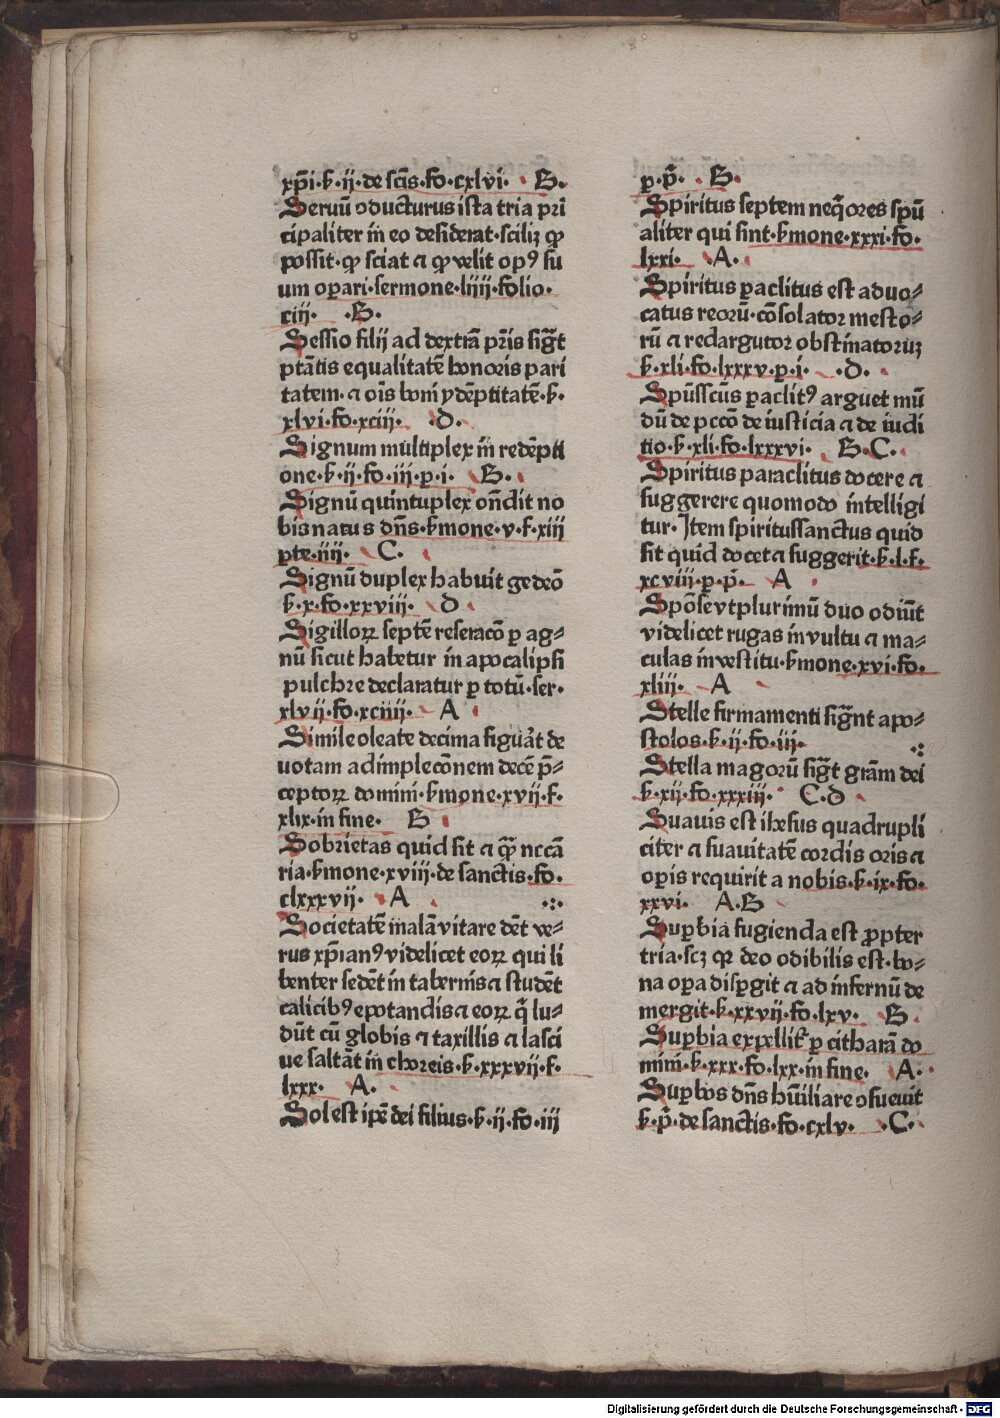 xp̄i·ẜ·ij·de scīs·fo·cxlvi· B·
Seruū ꝯducturus ista tria pri
cipaliter in eo desiderat·scilꝫ ꝙ
possit·ꝙ sciat ⁊ ꝙ velit opꝰ su
um oꝑari·sermone·liiij·folio·
ciij· ·B·
Sessio filij ad dextrā pr̄is sigt̄
ptātis equalitatē honoris pari
tatem·⁊ oīs boni ydēptitatē·ẜ·
xlvi·fo·xciij· D·
Signum multiplex in redēpti
one·ẜ·ij·fo·iij·p·i· B·
Signū quintuplex on̄dit no
bis natus dn̄s·ẜmone·v·f·xiij
pte·iij· C·
Signū duplex habuit gedeō
ẜ·x·fo·xxviij· D·
Sigilloꝝ septē reseracō ꝑ ag⸗
nū sicut habetur in apocalipsi
pulchre declaratur ꝑ totū·ser·
xlvij·fo·xciiij· A
Simile oleate decima figuāt de
uotam adimplecōnem decē p̄⸗
ceptoꝝ domini·ẜmone·xvij·f·
xlix·in fine· B
Sobrietas quid sit ⁊ ꝙ̄ necā
ria·ẜmone·xviij·de sanctis·fo·
clxxxvij· A
Societatē malā vitare dēt ve⸗
rus xp̄ianꝰ videlicet eoꝝ qui li
benter sedēt in tabernis ⁊ studēt
calicibꝰ epotandis ⁊ eoꝝ q̄ lu⸗
dūt cū globis ⁊ taxillis ⁊ lasci
ue saltāt in choreis·ẜ·xxxvij·f·
lxxx· A·
Sol est ip̄e dei filius·ẜ·ij·fo·iij
p·p̄· B·
Spiritus septem neq̄ores spū
aliter qui sint·ẜmone·xxxi·fo·
lxxi· A·
Spiritus ꝑaclitus est aduo⸗
catus reorū·cōsolator mesto⸗
rū ⁊ redargutor obstinatoruꝫ
ẜ·xli·fo·lxxxv·p·i· ·D·
Spūsscūs ꝑaclitꝰ arguet mū
dū de pccō de iusticia ⁊ de iudi
tio·ẜ·xli·fo·lxxxvi· B·C·
Spiritus paraclitus docere ⁊
suggerere quomodo intelligi
tur·Item spiritussanctus quid
sit quid docet ⁊ suggerit·ẜ·l·f·
xcviij·p·p̄· A
Spōse vt plurimū duo odiūt
videlicet rugas in vultu ⁊ ma⸗
culas in vestitu·ẜmone·xvi·fo·
xliij· A
Stelle firmamenti sigñt apo⸗
stolos·ẜ·ij·fo·iij·
Stella magorū sigt̄ gram̄ dei
ẜ·xij·fo·xxxiij· C·D
Suauis est ihesus quadrupli
citer ⁊ suauitatē cordis oris ⁊
oꝑis requirit a nobis·ẜ·ix·fo·
xxvi· A·B
Suꝑbia fugienda est ꝓpter
tria·scꝫ qꝛ deo odibilis est·bo⸗
na oꝑa disꝑgit ⁊ ad infernū de
mergit·ẜ·xxvij·fo·lxv· B
Suꝑbia expellit᷑ ꝑ citharā do
mini·ẜ·xxx·fo·lxx·in fine· A·
Suꝑbos dn̄s hūiliare ꝯsueuit
ẜ·p̄·de sanctis·fo·cxlv· ·C·
Digitalisierung gefördert durch die Deutsche Forschungsgemeinschaft - DFG